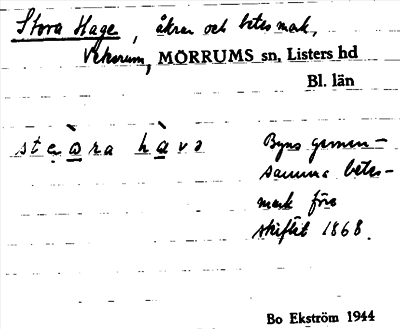 Stora Hage, åkrar och betesmark,
Vekerum, MÖRRUMS sn, Listers hd
Bl. län
Byns gemen-
samma betes-
mark före
skiftet 1868.
Bo Ekström 1944